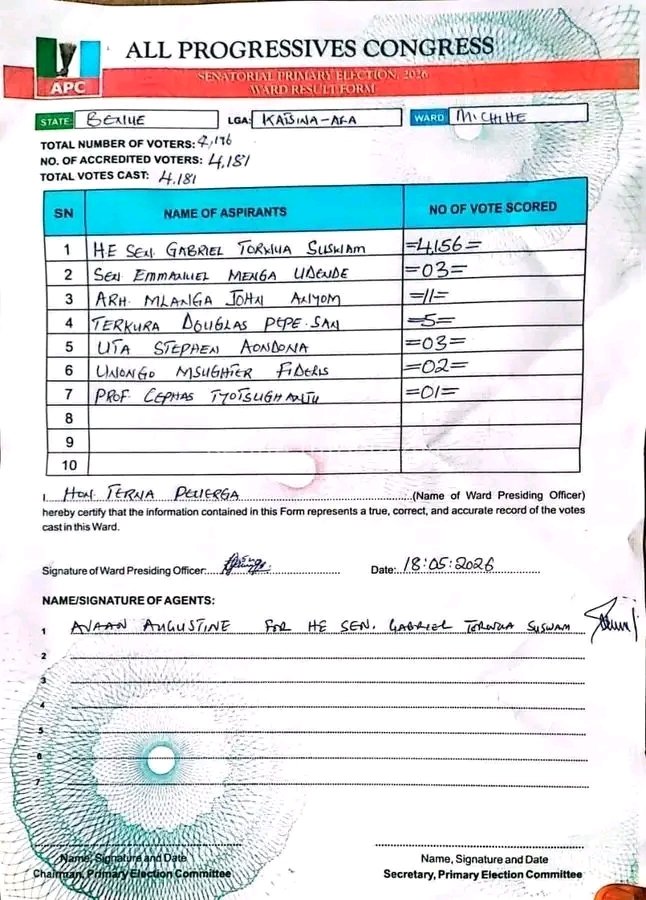 ALL PROGRESSIVES CONGRESS
APC
SENATORIAL PRIMARY ELECTION, 2026
WARD RESULT FORM
STATE BENUE LGA: KATSINA-ALA WARD MICHIHE
TOTAL NUMBER OF VOTERS: 4,196
NO. OF ACCREDITED VOTERS: 4,181
TOTAL VOTES CAST: 4,181
SN NAME OF ASPIRANTS NO OF VOTE SCORED
1 HE SEN. GABRIEL TORWUA SUSWAM =4,156=
2 SEN EMMANUEL MENGA UDENDE =03=
3 ARH. MLANGA JOHN ANYOM =11=
4 TERKURA DOUGLAS PEPE-SAN =5=
5 UTA STEPHEN AONDONA =03=
6 UNONGO MSUGHTER FIDERIS =02=
7 PROF CEPHAS =01=
8
9
10
I, HON TERNA (Name of Ward Presiding Officer)
hereby certify that the information contained in this Form represents a true, correct, and accurate record of the votes
cast in this Ward.
Signature of Ward Presiding Officer: Date: 18:05:2026
NAME/SIGNATURE OF AGENTS:
1 AVAAN AUGUSTINE FOR HE SEN. GABRIEL TORWUA SUSWAM
2
3
4
5
6
7
Name, Signature and Date Name, Signature and Date
Chairman, Primary Election Committee Secretary, Primary Election Committee